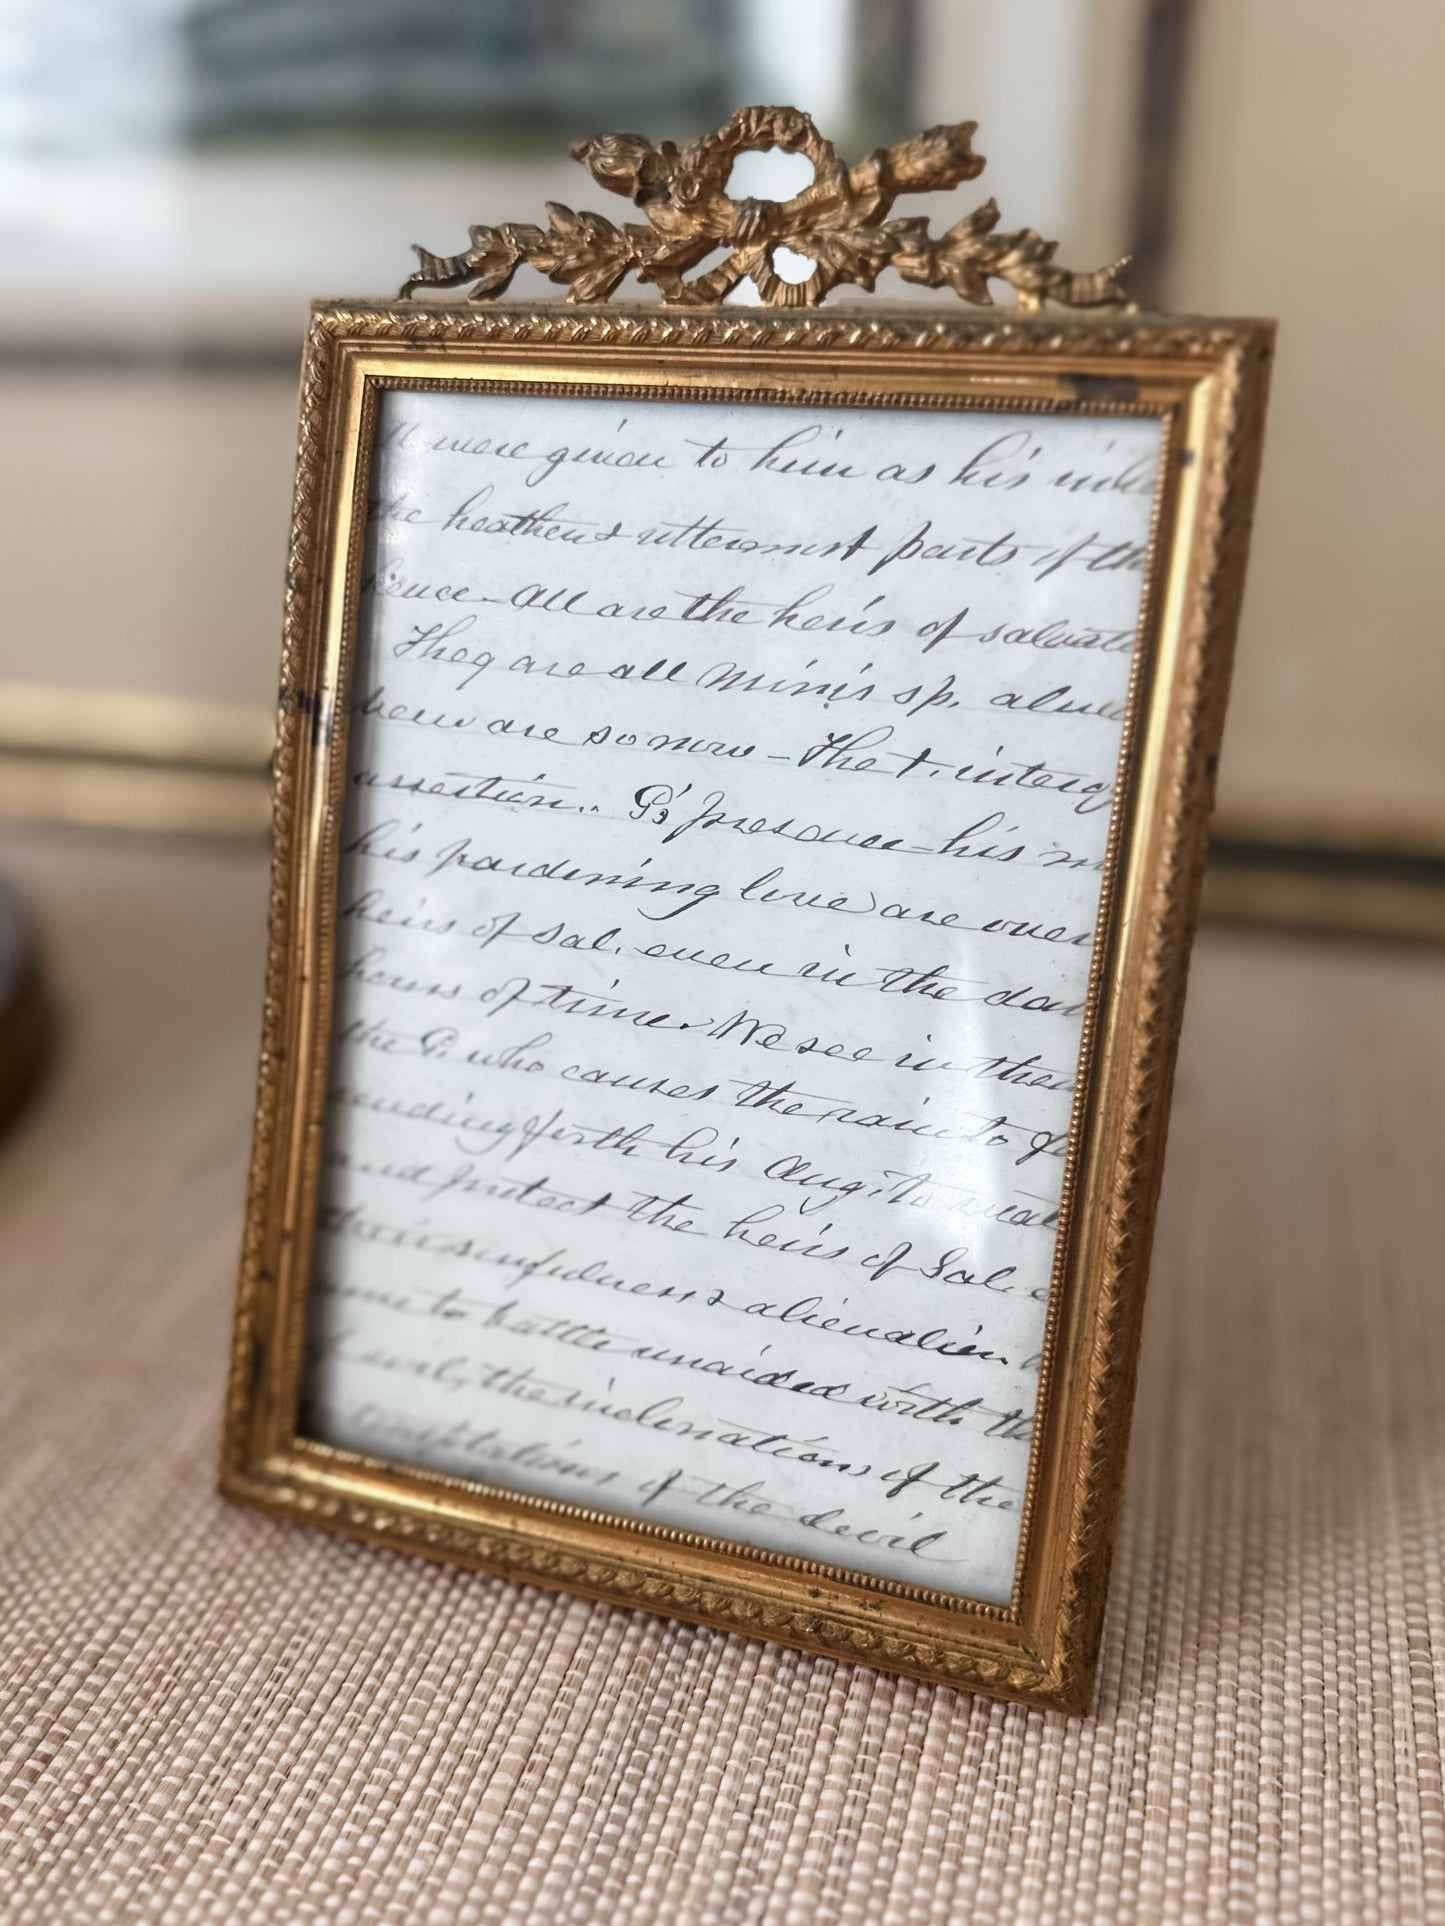 were given to him as his
the heathen & uttermost parts of the
hence - All are the heirs of
They are all Minis sp. alway
been are so now - The +. interog
assertion.. G's presence - his
his pardoning love are over
heirs of Sal. even in the
hours of time. We see in them
the G. who causes the rain to
sending forth his Ang. to
and protect the heirs of Sal.
their sinfulness & alienation
to battle unaided with the
evil, the inclinations of the
temptations of the devil